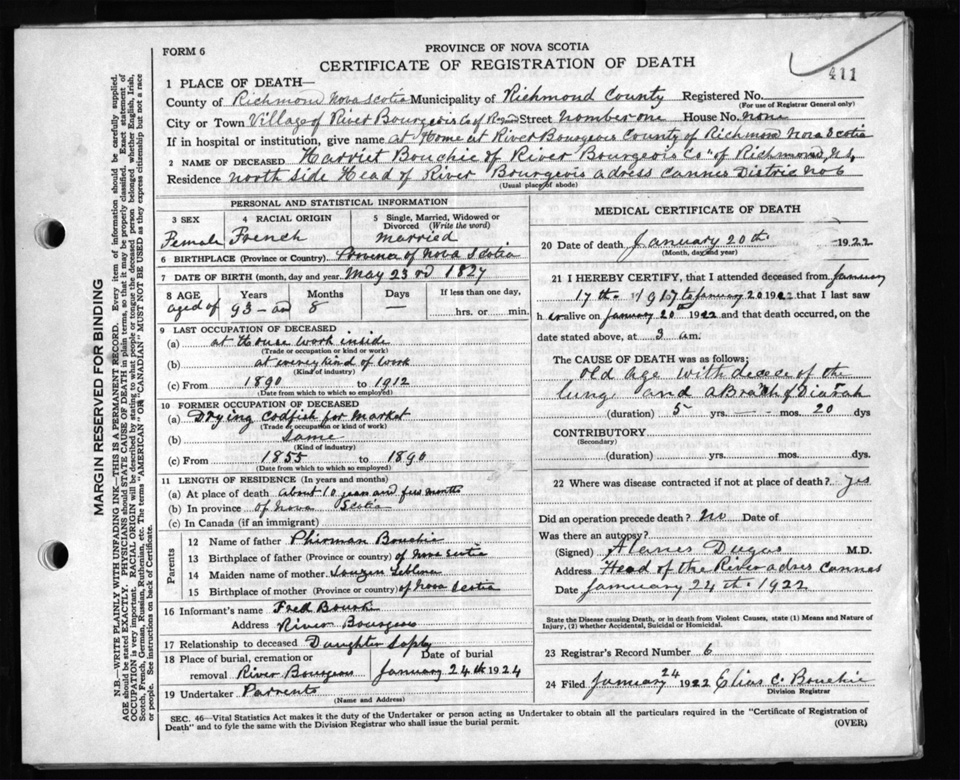 FORM 6
PROVINCE OF NOVA SCOTIA
CERTIFICATE OF REGISTRATION OF DEATH
411
1 PLACE OF DEATH—
County of Richmond Nova Scotia Municipality of Richmond County Registered No.
(For use of Registrar General only)
City or Town Village of River Bourgeois Co of Street nomber one House No. none
If in hospital or institution, give name at Home at River Bourgeois County of Richmond Nova Scotia
2 NAME OF DECEASED Harriet Bouchie of River Bourgeois Co" of Richmond N S,
Residence north side Head of River Bourgeois adress Cannes Distric No 6
(Usual place of abode)
PERSONAL AND STATISTICAL INFORMATION
3 SEX 4 RACIAL ORIGIN 5 Single, Married, Widowed or Divorced (Write the word)
Female French married
6 BIRTHPLACE (Province or Country) Province of Nova Scotia
7 DATE OF BIRTH (month, day and year) May 23rd 1827
8 AGE Years Months Days If less than one day,
aged of 93 - and 8 — hrs. or min.
9 LAST OCCUPATION OF DECEASED
(a) at House work inside
(Trade or occupation or kind or work)
(b) at every kind of work
(Kind of industry)
(c) From 1890 to 1912
(Date from which to which so employed)
10 FORMER OCCUPATION OF DECEASED
(a) Drying codfish for market
(Trade or occupation or kind of work)
(b) Same
(Kind of industry)
(c) From 1855 to 1890
(Date from which to which so employed)
11 LENGTH OF RESIDENCE (In years and months)
(a) At place of death about 10 years and months
(b) In province of Nova Scotia
(c) In Canada (if an immigrant)
Parents
12 Name of father Phirman Bouchie
13 Birthplace of father (Province or country) of Nova Scotia
14 Maiden name of mother
15 Birthplace of mother (Province or country) of Nova Scotia
16 Informant's name Fred
Address River Bourgeois
17 Relationship to deceased Daughter
18 Place of burial, cremation or removal River Bourgeois
Date of burial January 24th 1924
19 Undertaker Parrents
(Name and Address)
MEDICAL CERTIFICATE OF DEATH
20 Date of death January 20th 1922
(Month, day and year)
21 I HEREBY CERTIFY, that I attended deceased from January
17th 1917 to January 20 1922 that I last saw
her alive on January 20th 1922 and that death occurred, on the
date stated above, at 3 am.
The CAUSE OF DEATH was as follows;
Old Age with decece of the
lung and a of Diarah
(duration) 5 yrs. — mos. 20 dys
CONTRIBUTORY
(Secondary)
(duration) yrs. mos. dys.
22 Where was disease contracted if not at place of death? yes
Did an operation precede death? no Date of
Was there an autopsy?
(Signed) Dugas M.D.
Address Head of the River adres Cannes
Date January 24th 1922
State the Disease causing Death, or in death from Violent Causes, state (1) Means and Nature of Injury, (2) whether Accidental, Suicidal or Homicidal.
23 Registrar's Record Number 6
24 Filed January 24 1922 Elias C. Bouchie
Division Registrar
SEC. 46—Vital Statistics Act makes it the duty of the Undertaker or person acting as Undertaker to obtain all the particulars required in the "Certificate of Registration of
Death" and to fyle the same with the Division Registrar who shall issue the burial permit.
(OVER)
MARGIN RESERVED FOR BINDING
N.B.—WRITE PLAINLY WITH UNFADING INK—THIS IS A PERMANENT RECORD. Every item of information should be carefully supplied.
AGE should be stated EXACTLY. PHYSICIANS should STATE CAUSE OF DEATH in plain terms, so that it may be properly classified. Exact statement of
OCCUPATION is very important. RACIAL ORIGIN will be described by stating to what people or tongue the deceased person belonged whether English, Irish,
Scotch, French, German, Russian, Ruthenian, etc. The terms "AMERICAN" OR "CANADIAN" MUST NOT BE USED as they express citizenship but not a race
or people. See instructions on back of Certificate.